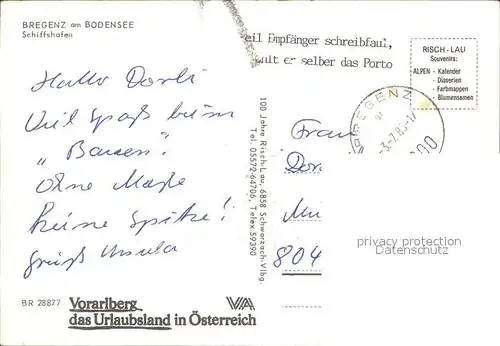 BREGENZ am BODENSEE
Schiffshafen
Hallo Dorli
Viel Spaß beim
„Bauen".
Ohne
keine Spitze!
Grüß Ursula
BR 28877
Vorarlberg
das Urlaubsland in Österreich
VA
100 Jahre Risch-Lau, 6858 Schwarzach-Vlbg.
Tel. 05572-64706, Telex 59390
eil Empfänger schreibfaul,
er selber das Porto
RISCH-LAU
Souvenirs:
ALPEN - Kalender
- Diaserien
- Farbmappen
- Blumensamen
BREGENZ
Frau
Dor
Mü
804
privacy protection
Datenschutz